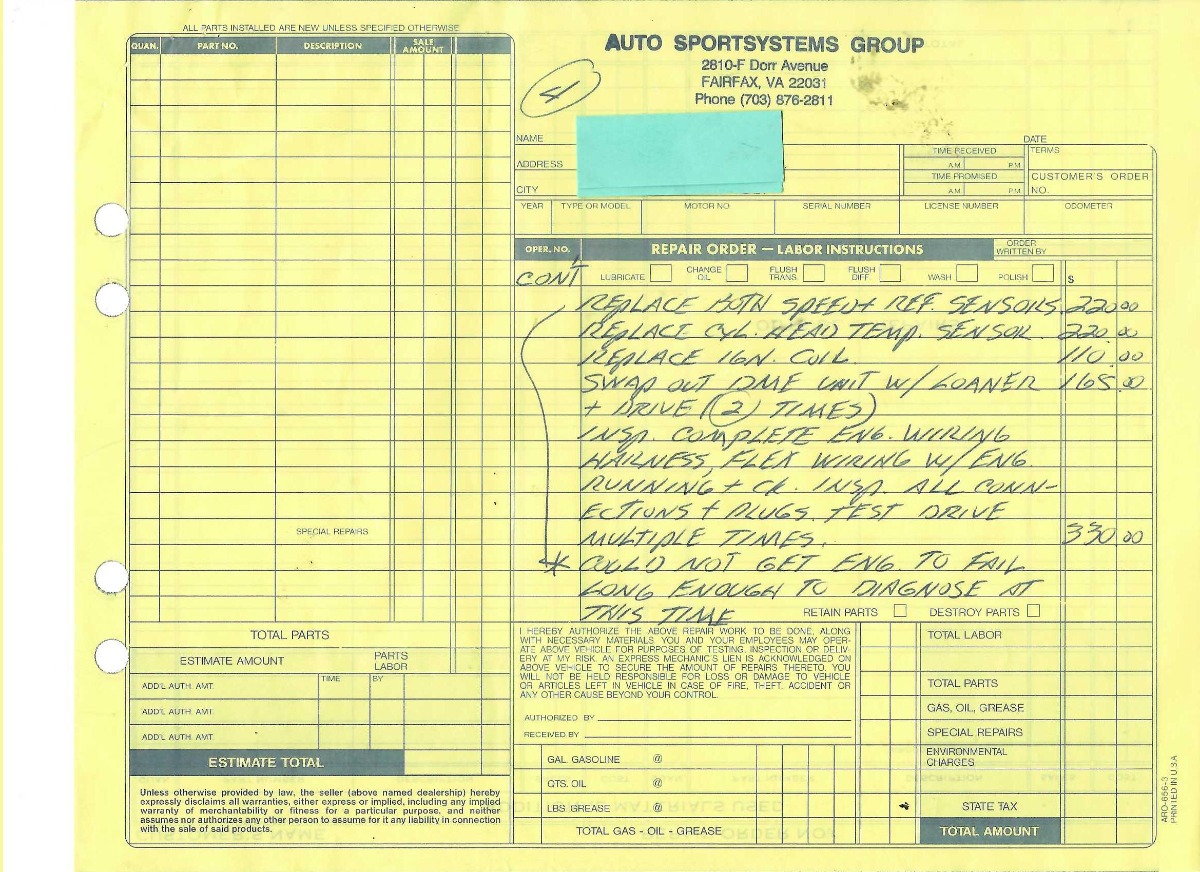 ALL PARTS INSTALLED ARE NEW UNLESS SPECIFIED OTHERWISE
QUAN. PART NO. DESCRIPTION SALE AMOUNT
AUTO SPORTSYSTEMS GROUP
2810-F Dorr Avenue
FAIRFAX, VA 22031
Phone (703) 876-2811
4
NAME DATE
ADDRESS TIME RECEIVED A.M. P.M. TERMS
CITY TIME PROMISED A.M. P.M. CUSTOMER'S ORDER NO.
YEAR TYPE OR MODEL MOTOR NO. SERIAL NUMBER LICENSE NUMBER ODOMETER
OPER. NO. REPAIR ORDER — LABOR INSTRUCTIONS ORDER WRITTEN BY
CONT LUBRICATE CHANGE OIL FLUSH TRANS. FLUSH DIFF. WASH POLISH $
REPLACE BOTH SPEED + REF. SENSORS. 220.00
REPLACE CYL. HEAD TEMP. SENSOR. 220.00
REPLACE IGN. COIL. 110.00
SWAP OUT DME UNIT W/ LOANER 165.00
+ DRIVE (2) TIMES)
INSP. COMPLETE ENG. WIRING
HARNESS, FLEX WIRING W/ ENG.
RUNNING + CK. INSP. ALL CONN-
ECTIONS + PLUGS. TEST DRIVE
MULTIPLE TIMES. 330.00
* COULD NOT GET ENG. TO FAIL
LONG ENOUGH TO DIAGNOSE AT
THIS TIME
SPECIAL REPAIRS
RETAIN PARTS DESTROY PARTS
TOTAL PARTS
ESTIMATE AMOUNT PARTS LABOR
ADD'L AUTH. AMT. TIME BY
ADD'L AUTH. AMT.
ADD'L AUTH. AMT.
ESTIMATE TOTAL
Unless otherwise provided by law, the seller (above named dealership) hereby
expressly disclaims all warranties, either express or implied, including any implied
warranty of merchantability or fitness for a particular purpose, and neither
assumes nor authorizes any other person to assume for it any liability in connection
with the sale of said products.
I HEREBY AUTHORIZE THE ABOVE REPAIR WORK TO BE DONE, ALONG
WITH NECESSARY MATERIALS. YOU AND YOUR EMPLOYEES MAY OPER-
ATE ABOVE VEHICLE FOR PURPOSES OF TESTING, INSPECTION OR DELIV-
ERY AT MY RISK. AN EXPRESS MECHANIC'S LIEN IS ACKNOWLEDGED ON
ABOVE VEHICLE TO SECURE THE AMOUNT OF REPAIRS THERETO. YOU
WILL NOT BE HELD RESPONSIBLE FOR LOSS OR DAMAGE TO VEHICLE
OR ARTICLES LEFT IN VEHICLE IN CASE OF FIRE, THEFT, ACCIDENT OR
ANY OTHER CAUSE BEYOND YOUR CONTROL.
AUTHORIZED BY
RECEIVED BY
GAL. GASOLINE @
QTS. OIL @
LBS. GREASE @
TOTAL GAS - OIL - GREASE
TOTAL LABOR
TOTAL PARTS
GAS, OIL, GREASE
SPECIAL REPAIRS
ENVIRONMENTAL CHARGES
STATE TAX
TOTAL AMOUNT
ARO-656-3
PRINTED IN U.S.A